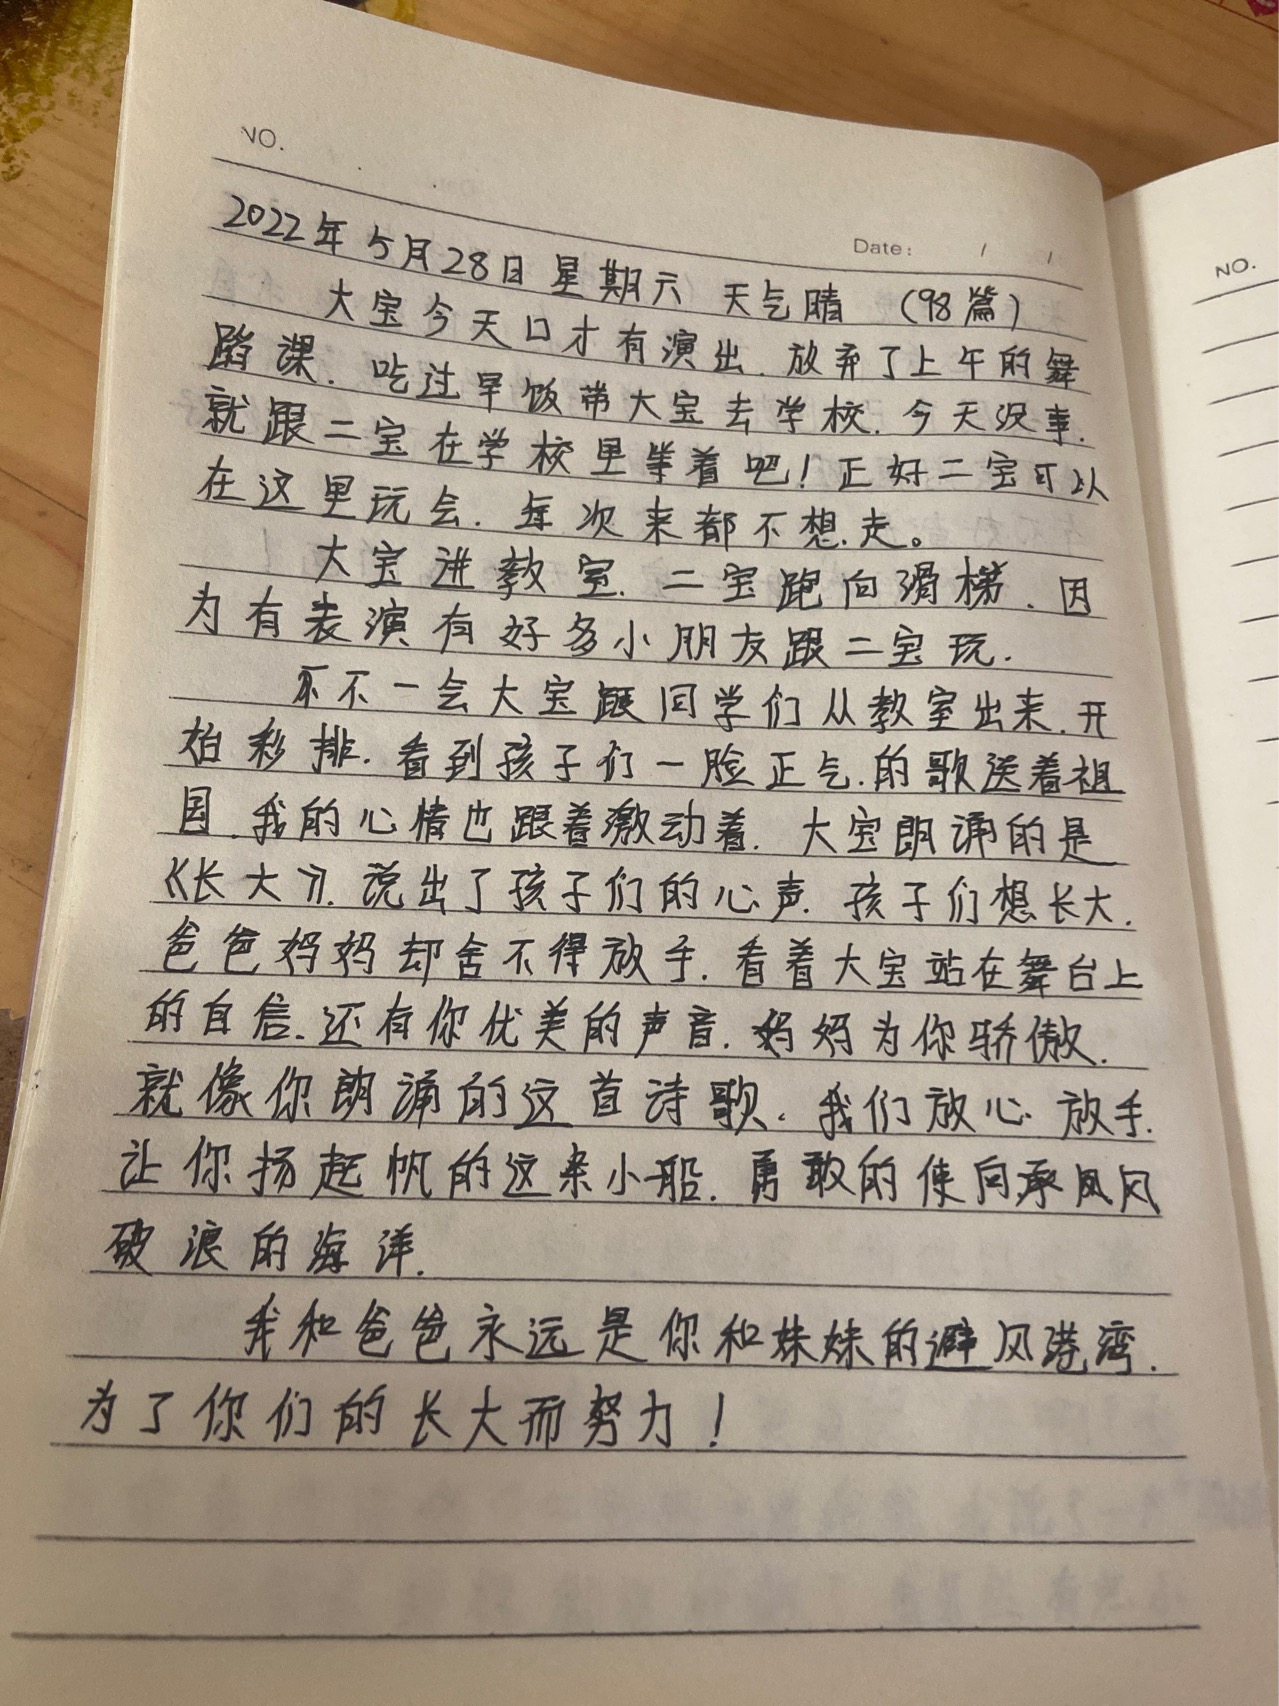 NO.
Date: / /
2022年5月28日 星期六 天气晴 （98篇）
大宝今天口才有演出.放弃了上午的舞
蹈课.吃过早饭带大宝去学校.今天没事.
就跟二宝在学校里等着吧!正好二宝可以
在这里玩会.每次来都不想走。
大宝进教室.二宝跑向滑梯.因
为有表演有好多小朋友跟二宝玩.
不不一会大宝跟同学们从教室出来.开
始彩排.看到孩子们一脸正气.的歌送着祖
国.我的心情也跟着激动着.大宝朗诵的是
《长大》.说出了孩子们的心声.孩子们想长大.
爸爸妈妈却舍不得放手.看着大宝站在舞台上
的自信.还有你优美的声音.妈妈为你骄傲.
就像你朗诵的这首诗歌.我们放心.放手.
让你扬起帆的这条小船.勇敢的使向乘风风
破浪的海洋.
我和爸爸永远是你和妹妹的避风港湾.
为了你们的长大而努力!
NO.